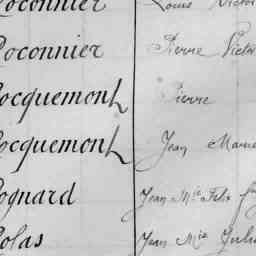 oconnier Louis Victor
oconnier Pierre Victor
ocquemont Pierre
ocquemont Jean Marie
ognard Jean Mie Felix
olas Jean Mie Julie